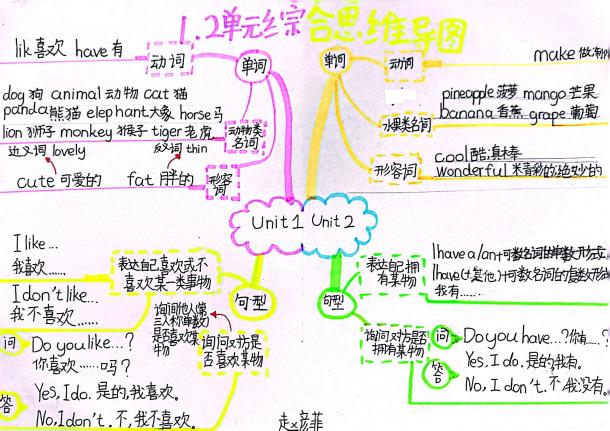 1.2单元综合思维导图
lik 喜欢 have 有
动词
单词
dog 狗 animal 动物 cat 猫
panda 熊猫 elephant 大象 horse 马
lion 狮子 monkey 猴子 tiger 老虎
动物类
名词
近义词 lovely
反义词 thin
cute 可爱的 fat 胖的
形容
词
单词
动词
make 做,制作
pineapple 菠萝 mango 芒果
banana 香蕉 grape 葡萄
水果类名词
形容词
cool 酷;真棒
wonderful 精彩的;绝妙的
Unit1 Unit2
I like...
我喜欢......
I don't like...
我不喜欢......
表达自己喜欢或不
喜欢某一类事物
句型
问
Do you like...?
你喜欢......吗?
答
Yes, I do. 是的,我喜欢。
No, I don't. 不,我不喜欢。
询问他人(第
三人称单数)
是否喜欢某
物
询问对方是
否喜欢某物
句型
表达自己拥
有某物
I have a/an+可数名词的单数形式
I have(+其他)+可数名词的复数形式
我有......
询问对方是否
拥有某物
问
Do you have...? 你有......?
答
Yes, I do. 是的,我有。
No, I don't. 不,我没有。